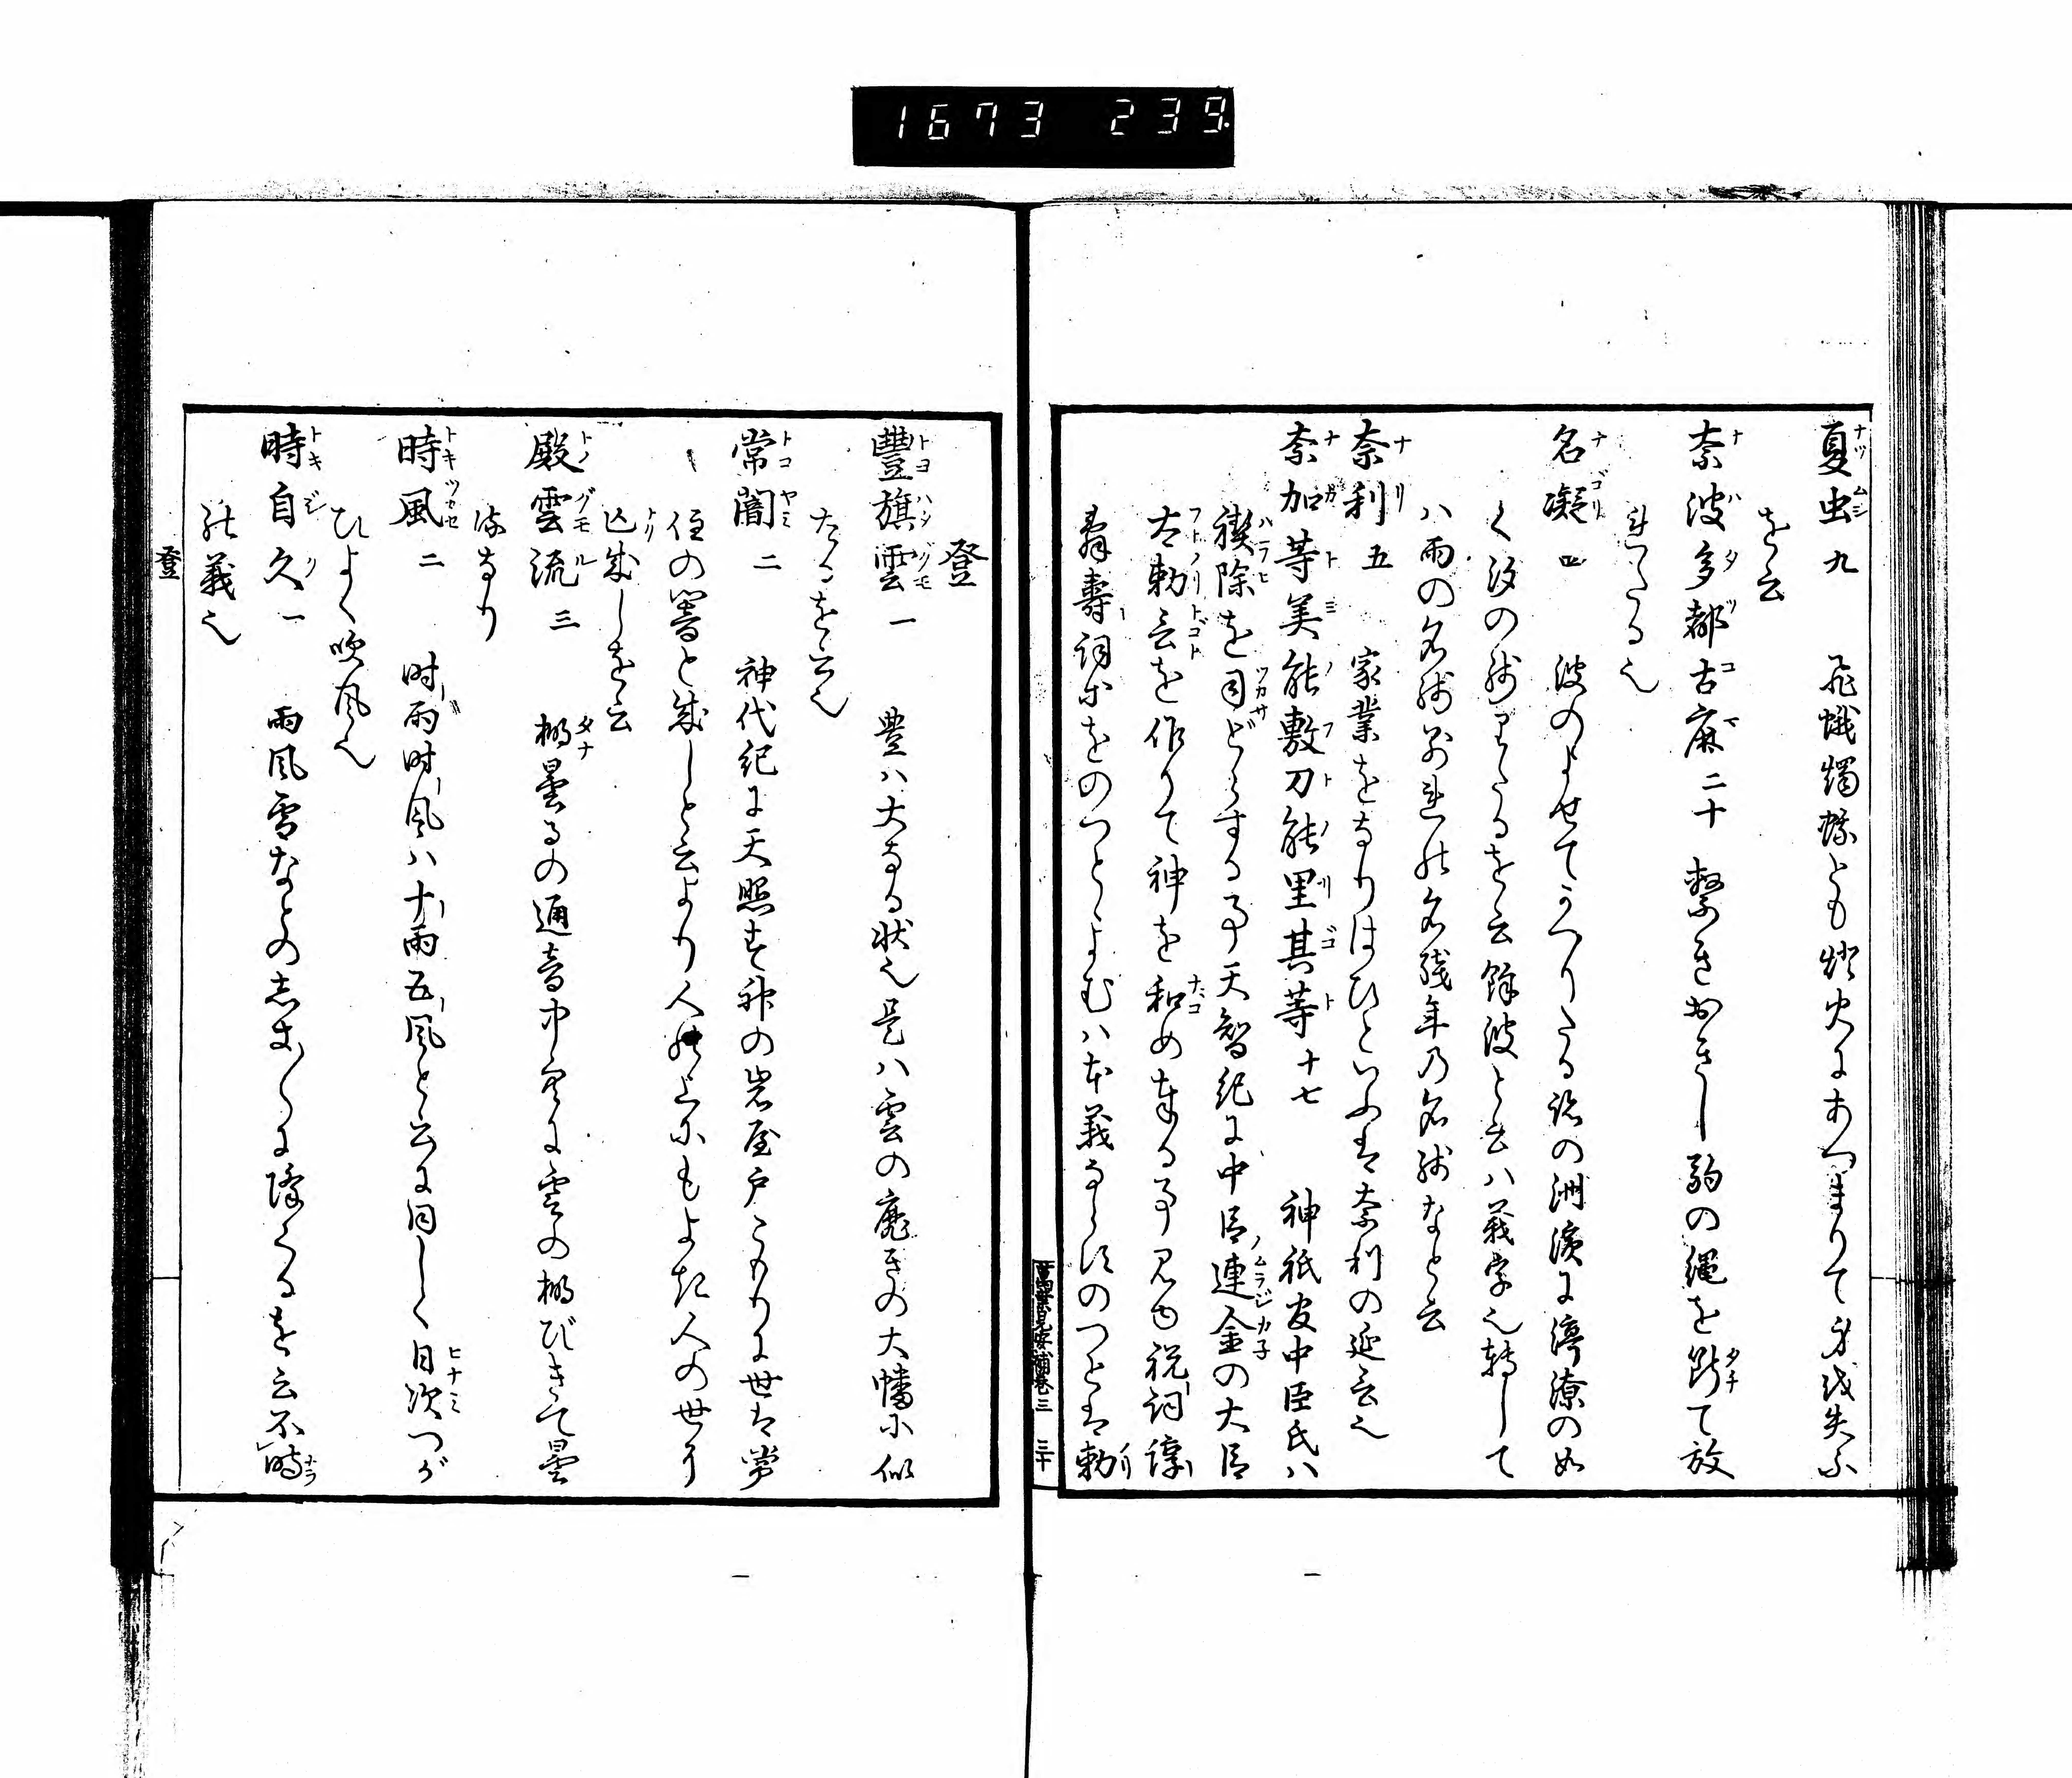 1673 239
夏虫 九 飛蛾燭蛾とも燈火にあつまりて身を失ふ
を云
奈波多都古麻 二十 繋きおきし駒の縄を断て放
れたる也
名凝 四 波のよせてかへりたる跡の洲濱に渟潦の如
く汐の残りたるを云餘波と云ハ義字也轉して
ハ雨の名残別れの名残年乃名残なと云
奈利 五 家業をなりはひといふは奈利の延言也
奈加等美能敷刀能里其等 十七 神祇官中臣氏ハ
禊除を司どらする事天智紀に中臣連金の大臣
太勅言を作りて神を和め奉る事見ゆ祝詞諄
壽詞等をのつとよむハ本義ならすのつとは勅
萬葉見安補巻三 三十
登
豊旗雲 一 豊ハ大なる状也是ハ雲の靡きの大幡に似
たるを云也
常闇 二 神代紀に天照大神の岩屋戸こもりに世は常
住の闇と成しと云より人の上にもよき人の世り
亡成しを云
殿雲流 三 棚曇るの通音中空に雲の棚びきて曇
るなり
時風 二 时雨时風ハ十雨五風と云に同しく日次つが
ひよく吹風也
時自久 一 雨風雪なとの志きりに降くるを云不時
の義也
登